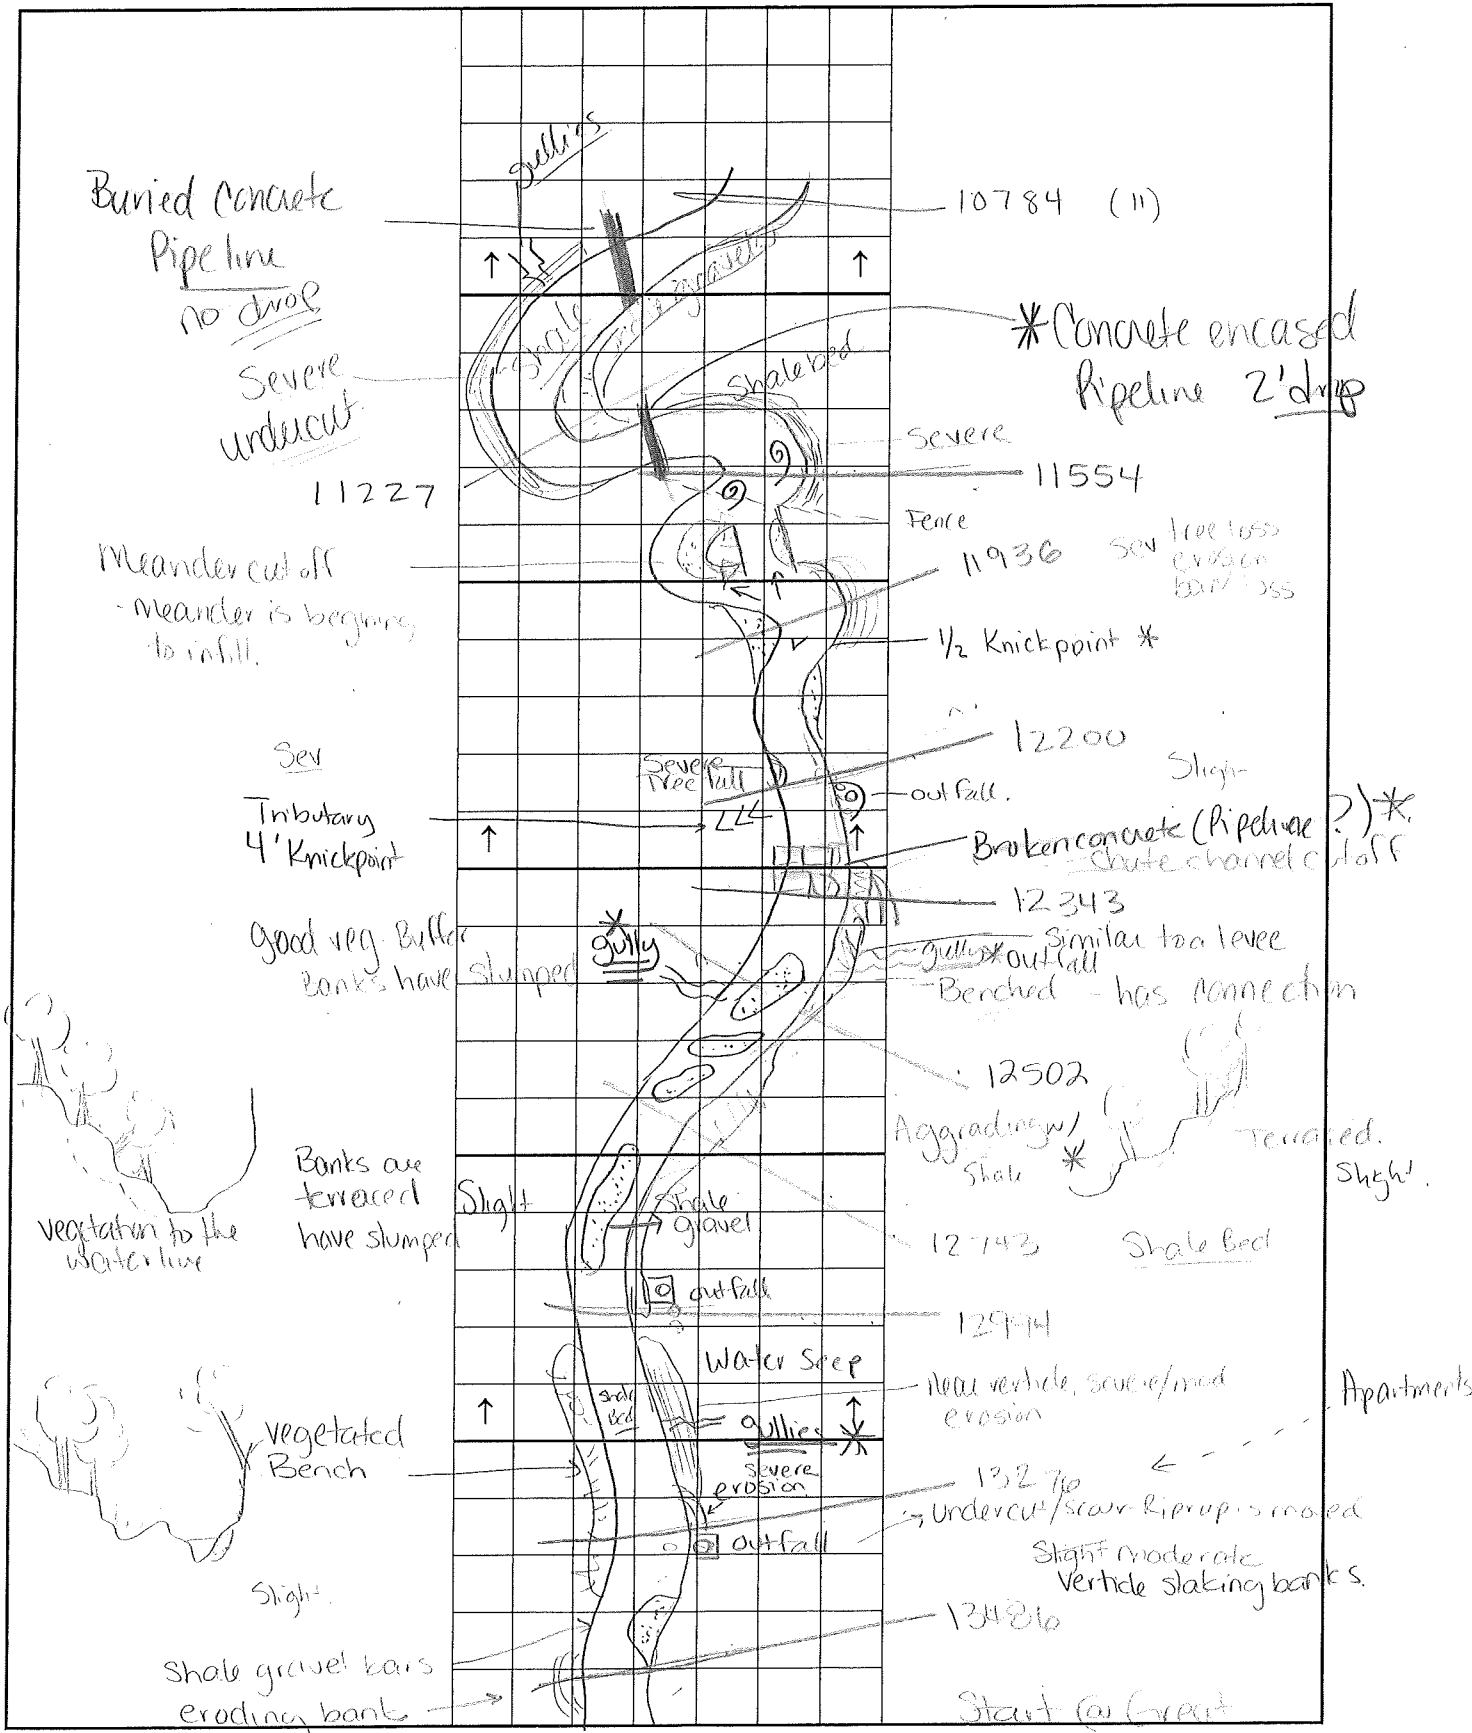 gullies
Buried Concrete
Pipeline
no drop
10784 (11)
Shale
gravels
*Concrete encased
Pipeline 2' drop
Severe
undercut
Shale bed
Severe
11227
11554
Fence
Meander cutoff
- Meander is begining
to infill.
11936
Sev tree loss
erosion
1/2 Knickpoint *
12200
Sev
Severe
Tree fall
outfall.
Tributary
4' Knickpoint
Broken concrete (Pipeline ?) *
chute channel cutoff
12343
good veg. Buffer
Banks have slumped
*
gully
Similar to a levee
gully * outfall
Benched - has connection
12502
Aggrading w/
Shale
*
Terraced.
Slight.
Banks are
terraced
have slumped
Slight
Shale
gravel
vegetation to the
waterline
12743
Shale Bed
outfall
12994
Water Seep
near verticle, severe/mod
erosion
Apartments
Shale
Bed
gullies *
vegetated
Bench
severe
erosion
13276
undercut/scour Riprap is moved
outfall
Slight moderate
verticle slaking banks.
Slight.
13486
Shale gravel bars
eroding bank
Start @ Great